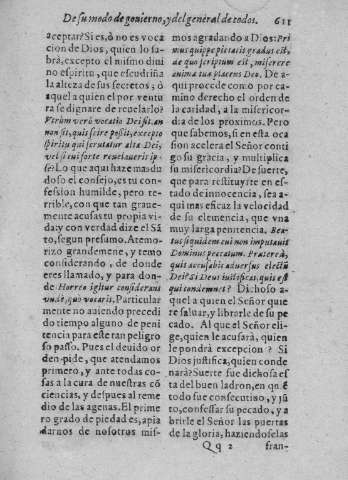 De su modo de gouierno, y del general de todos. 611
aceptar? Si es, ô no es voca
cion de Dios, quien lo sa-
brà, excepto el mismo diui
no espiritu, que escudriña
la alteza de sus secretos, ò
aquel a quien el por ventu
ra se dignare de reuelarlo?
Vtrùm verò vocatio Dei sit, an
non sit, quis scire possit, excepto
spiritu qui scrutatur alta Dei,
vel si cui forte reuelauerit ip-
se? Lo que aqui haze mas du
doso el consejo, es tu con-
fession humilde, pero te-
rrible, con que tan graue-
mente acusas tu propia vi
da: y con verdad dize el Sã
to, segun presumo. Atemo-
rizo grandemene, y temo
considerando, de donde
eres llamado, y para don-
de Horreo igitur considerans
vnde, quò vocaris. Particular
mente no auiendo precedi
do tiempo alguno de peni
tencia para este tan peligro
so passo. Pues el deuido or
den pide, que atendamos
primero, y ante todas co-
sas a la cura de nuestras cõ
ciencias, y despues al reme
dio de las agenas. El prime
ro grado de piedad es, apia
darnos de nosotros mis-
mos agradando a Dios: Pri
mus quippe pietatis gradus est,
de quo scriptum est, miserere
animæ tuæ placens Deo. De a-
qui procede como por ca-
mino derecho el orden de
la caridad, a la misericor-
dia de los proximos. Pero
que sabemos, si en esta oca
sion acelera el Señor conti
go su gracia, y multiplica
su misericordia? De suerte,
que para restituyrte en es-
tado de innocencia, sea a-
qui mas eficaz la velocidad
de su clemencia, que vna
muy larga penitencia. Bea-
tus siquidem cui non imputauit
Dominus peccatum. Præterea,
quis accusabit aduersus electũ
Dei? Si Deus iustificat, quis est
qui condemnet? Dichoso a-
quel a quien el Señor quie
re saluar, y librarle de su pe
cado. Al que el Señor eli-
ge, quien le acusarà, quien
le pondrà excepcion? Si
Dios justifica, quien conde
narà? Suerte fue dichosa es
ta del buen ladron, en qu͂ e
todo fue consecutiuo, y jũ
to, confessar su pecado, y a
brirle el Señor las puertas
de la gloria, haziendoselas
Qq 2 fran-